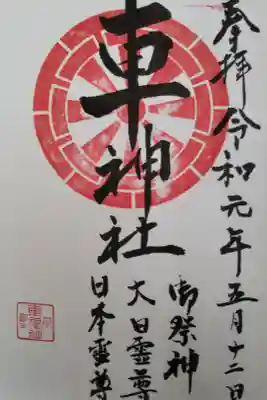 奉拝 令和元年五月十二日
車神社
御祭神
大日霊尊
日本霊尊